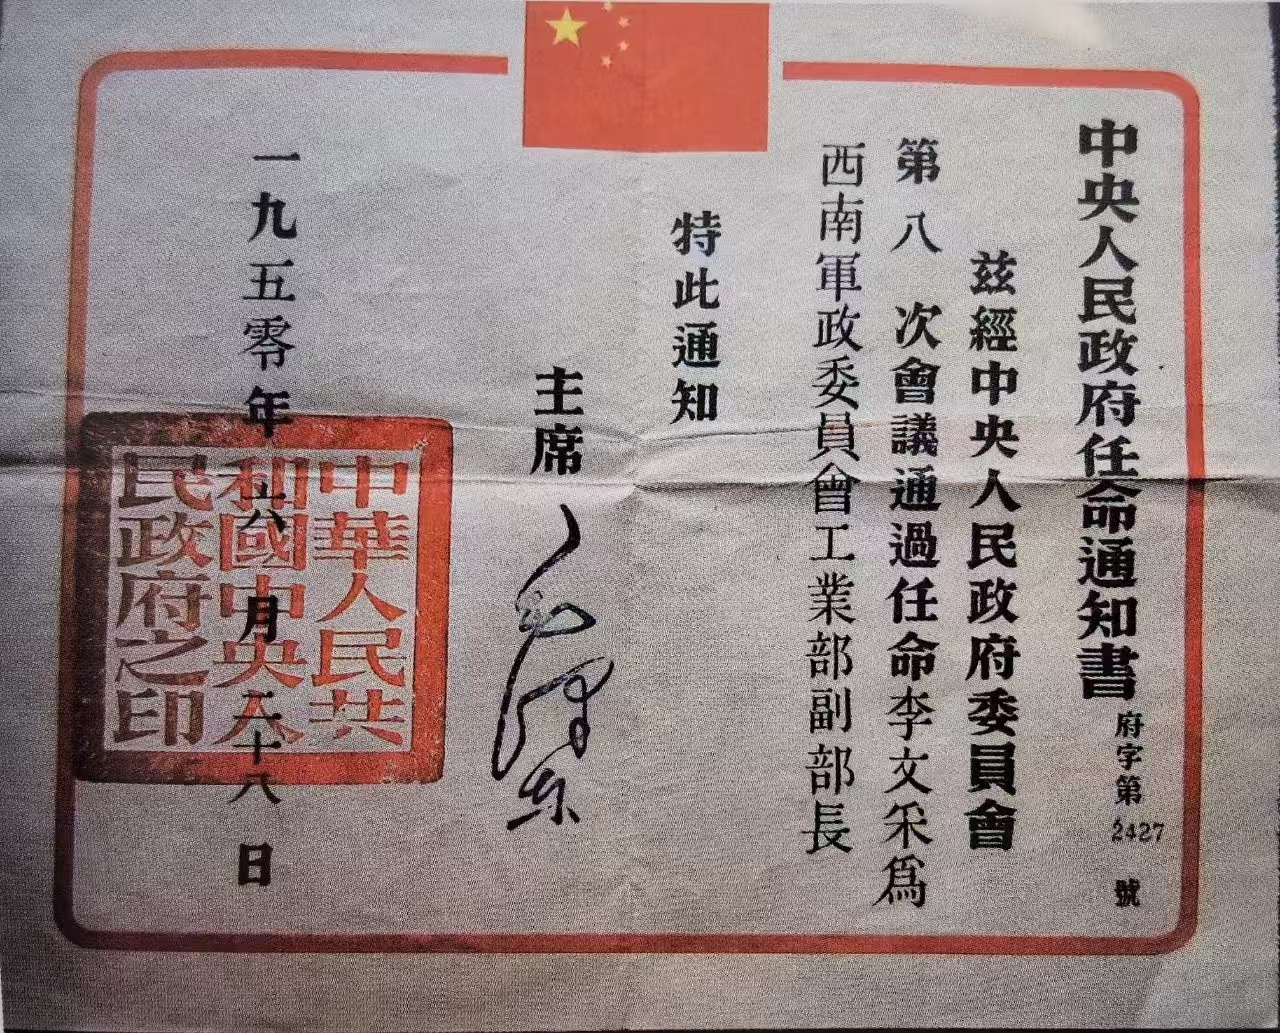 中央人民政府任命通知書
府字第2427號
茲經中央人民政府委員會
第八次會議通過任命李文采為
西南軍政委員會工業部副部長
特此通知
主席 毛澤東
一九五零年六月二十八日
中華人民共
和國中央人
民政府之印